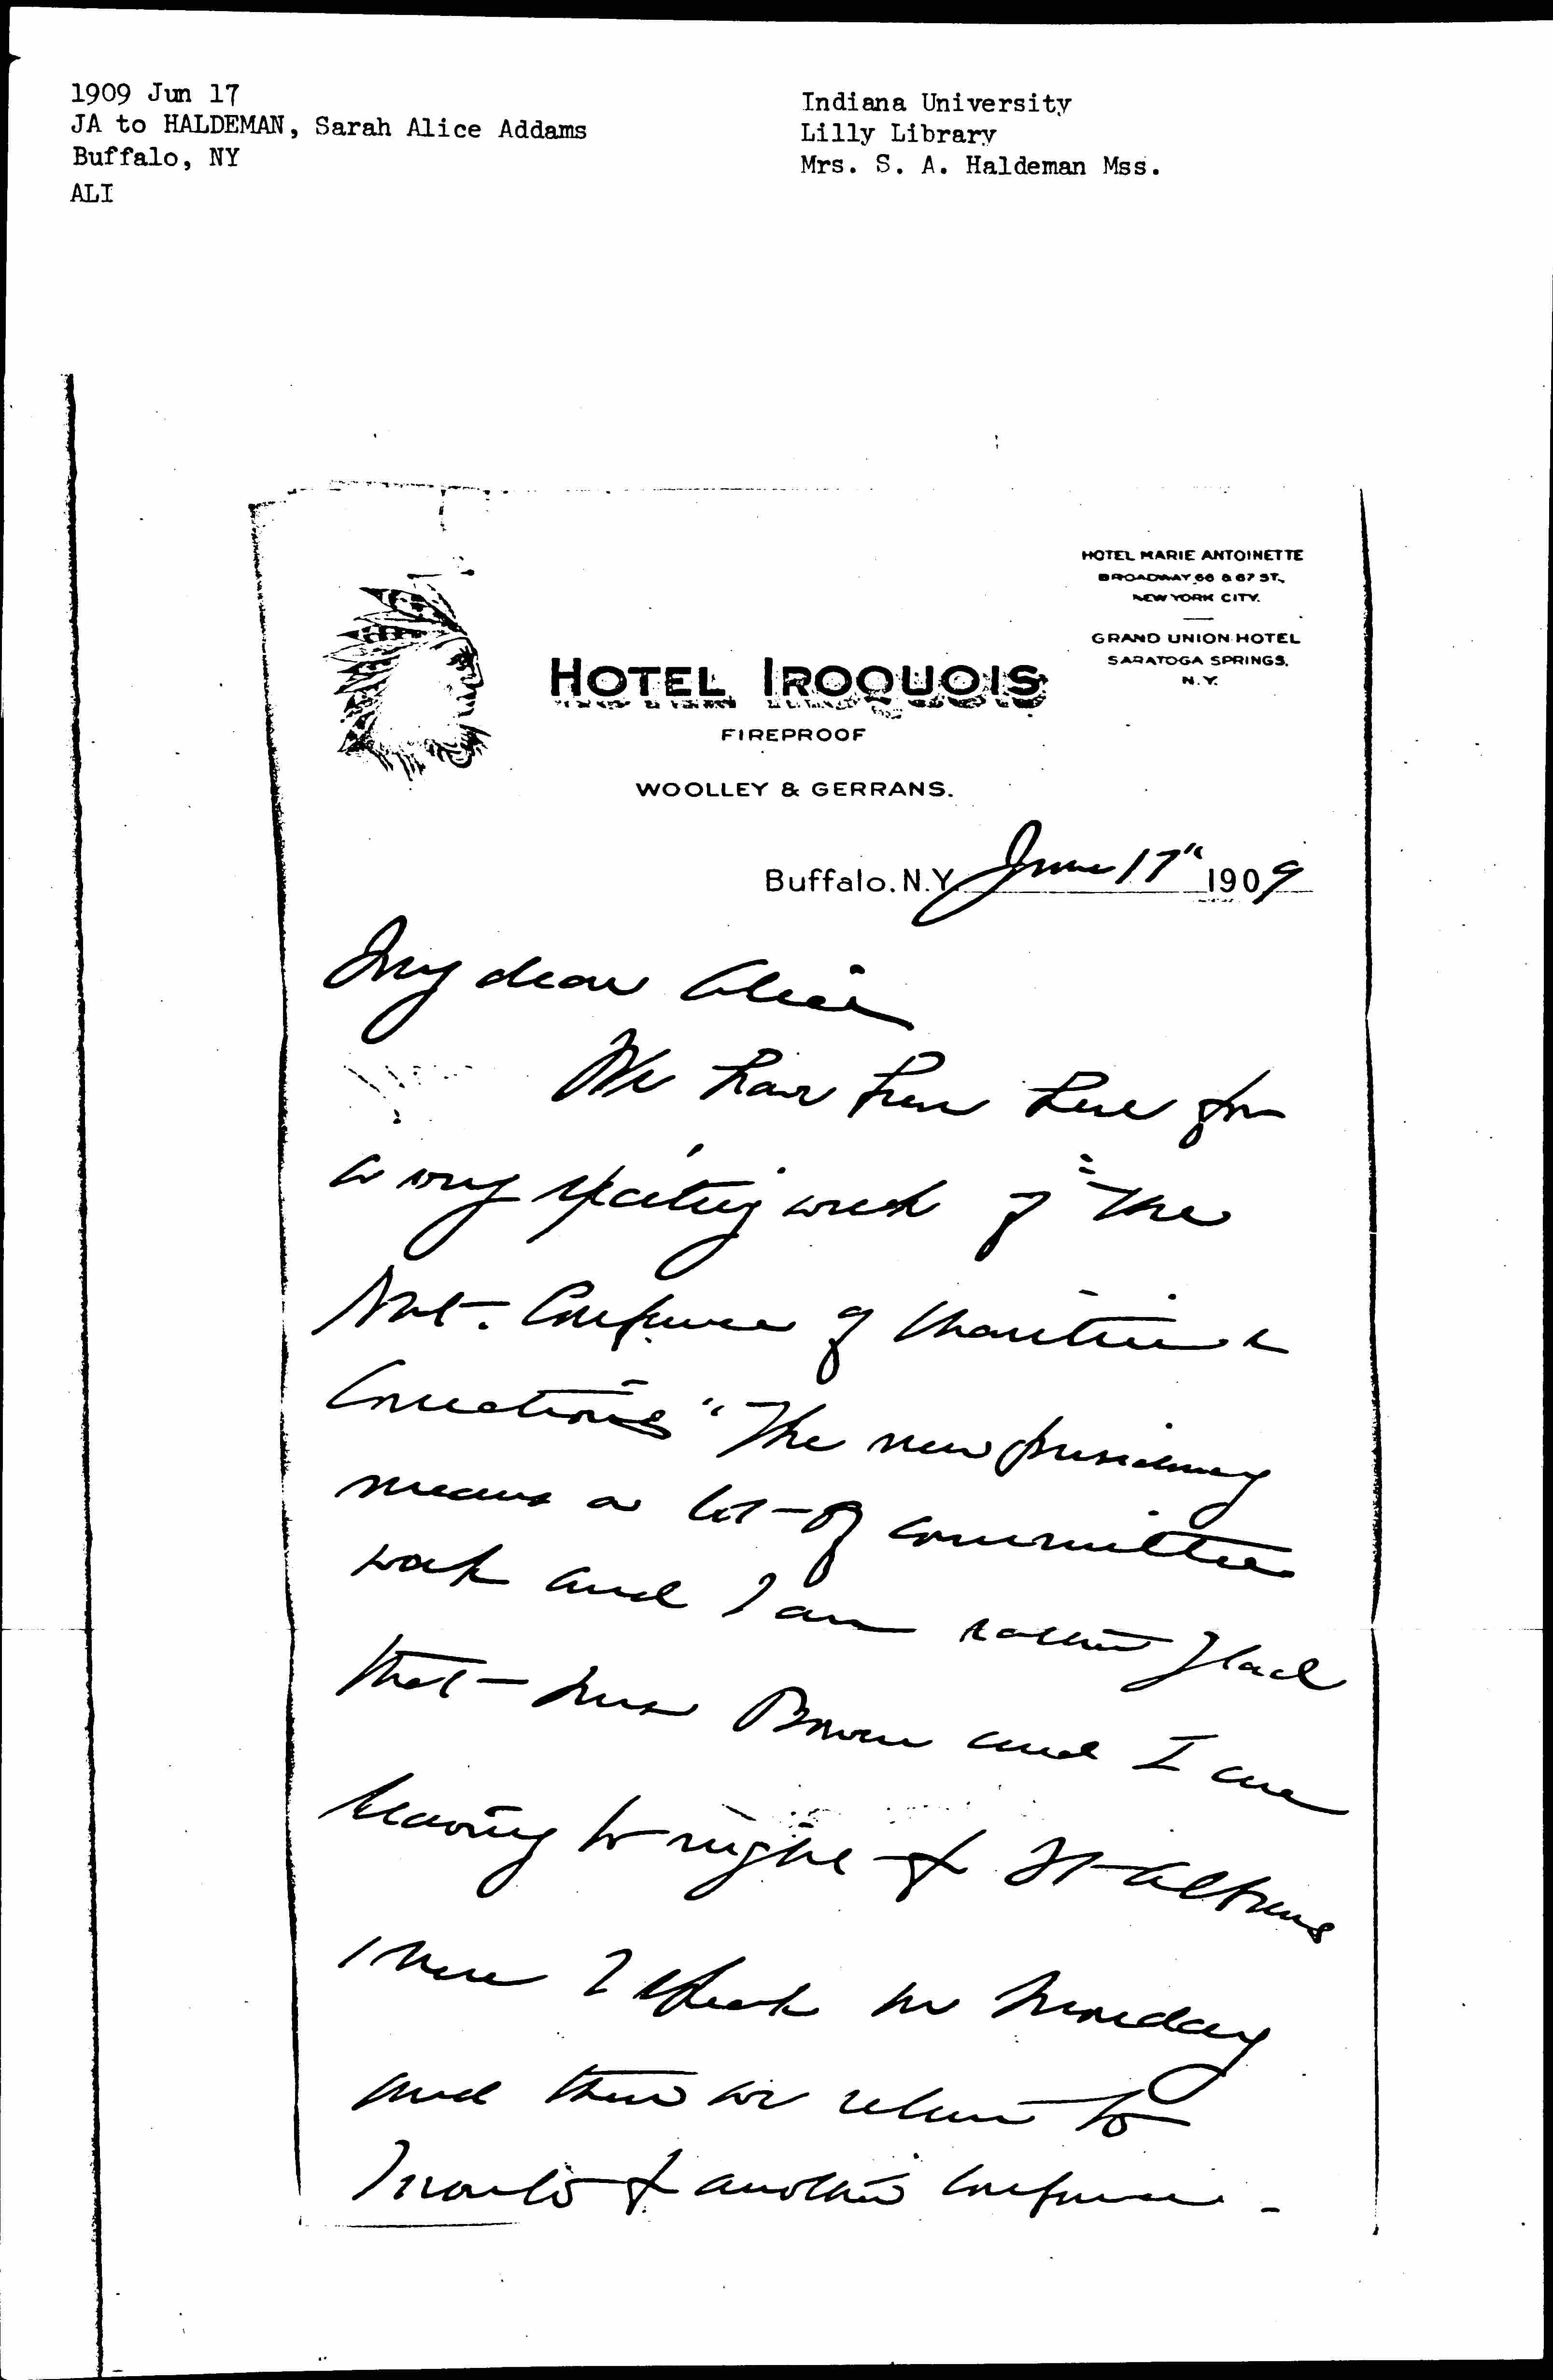 1909 Jun 17
JA to HALDEMAN, Sarah Alice Addams
Buffalo, NY
ALI
Indiana University
Lilly Library
Mrs. S. A. Haldeman Mss.
HOTEL MARIE ANTOINETTE
BROADWAY 66 & 67 ST.,
NEW YORK CITY.
GRAND UNION HOTEL
SARATOGA SPRINGS,
N.Y.
HOTEL IROQUOIS
FIREPROOF
WOOLLEY & GERRANS.
Buffalo, N.Y. June 17" 1909
My dear Alice
We have been here for
a very exciting week of "The
Nat. Conference of Charities &
Corrections" The new presidency
means a lot of committee
work and I am rather glad
that Mrs Bowen and I are
leaving to night for St Albans
where I speak on Monday
and then we return to
Toronto for another conference -